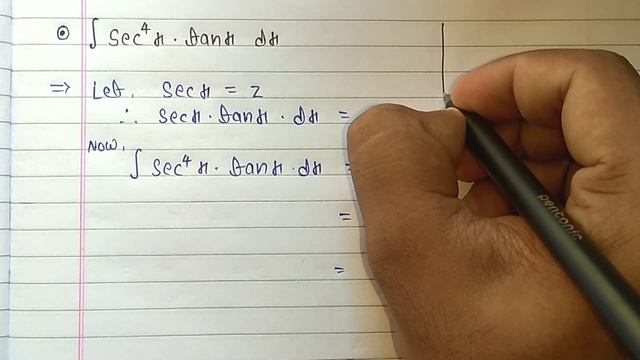 ⊙ ∫ Sec⁴x · tanx dx
⇒ Let, Secx = z
∴ Secx · tanx · dx =
Now,
∫ Sec⁴x · tanx · dx =
=
=
pentonic